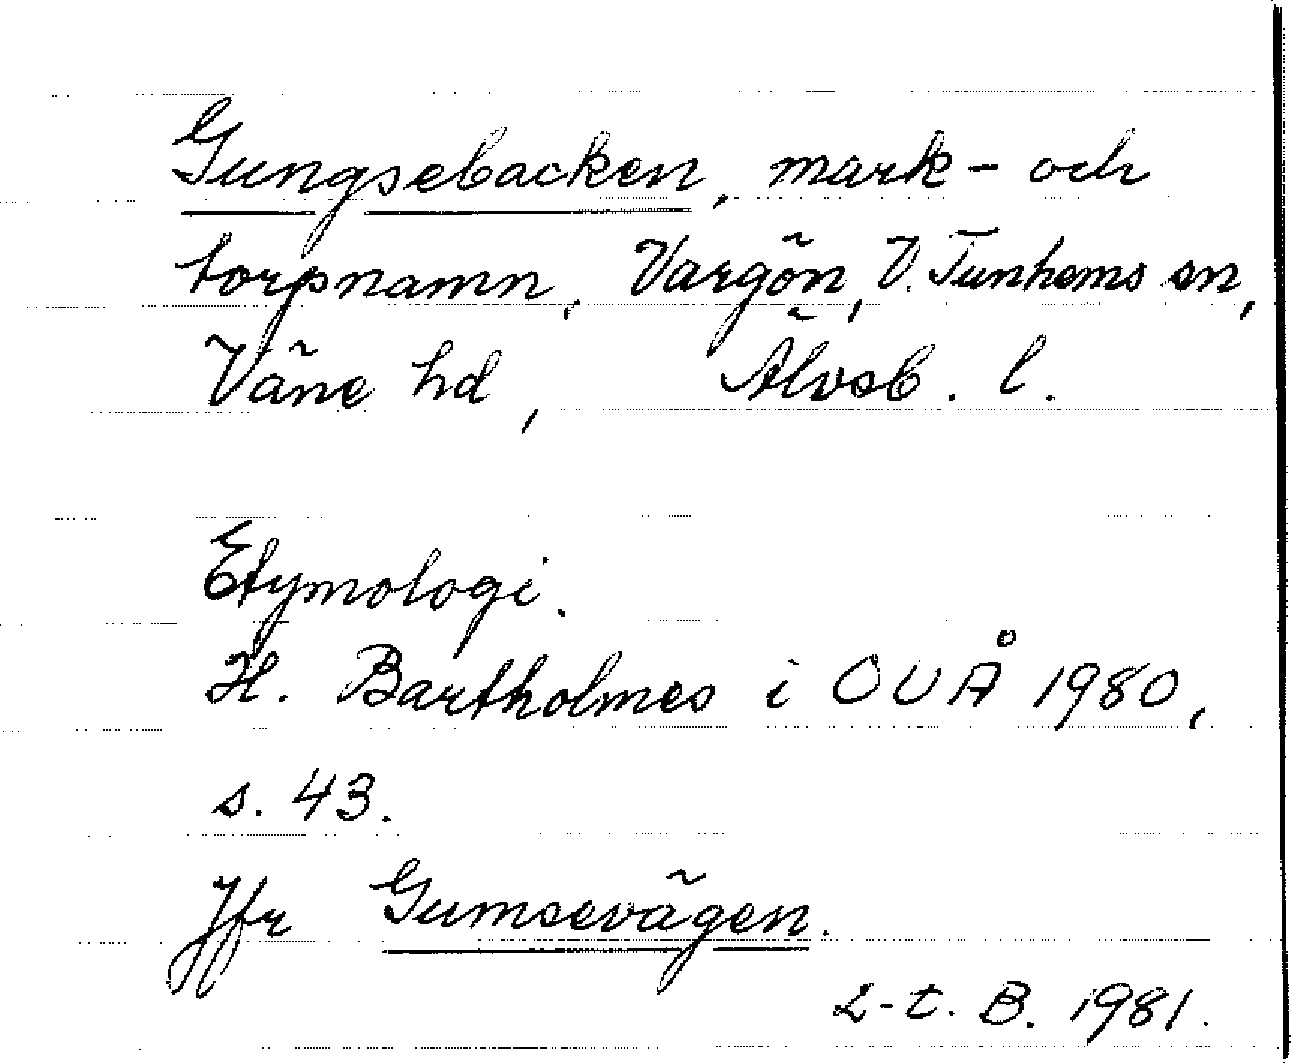 Gungsebacken, mark- och
torpnamn, Vargön, V. Tunhems sn,
Väne hd, Älvsb. l.
Etymologi.
H. Bartholmes i OUÅ 1980,
s. 43.
Jfr Gumsevägen.
L-t. B. 1981.